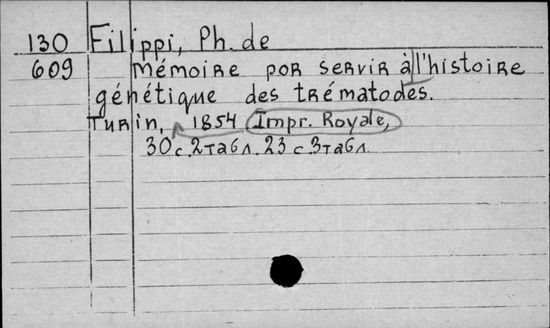 130 Filippi, Ph. de
609 mémoire por servir à l'histoire
génétique des trématodes.
Turin, 1854 Impr. Royale,
30 с. 2 табл. 23 с. 3 табл.